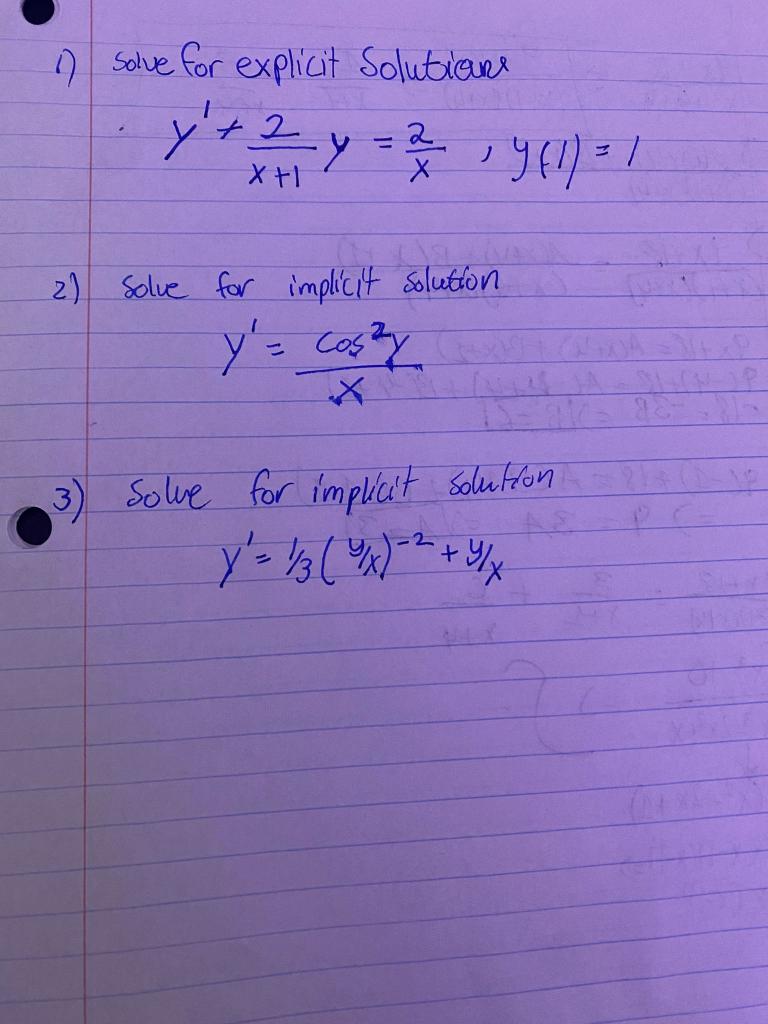 1) Solve for explicit Solutions
y' + 2/(x+1) y = 2/x , y(1) = 1
2) Solve for implicit solution
y' = cos²y/x
3) Solve for implicit solution
y' = 1/3 (y/x)⁻² + y/x